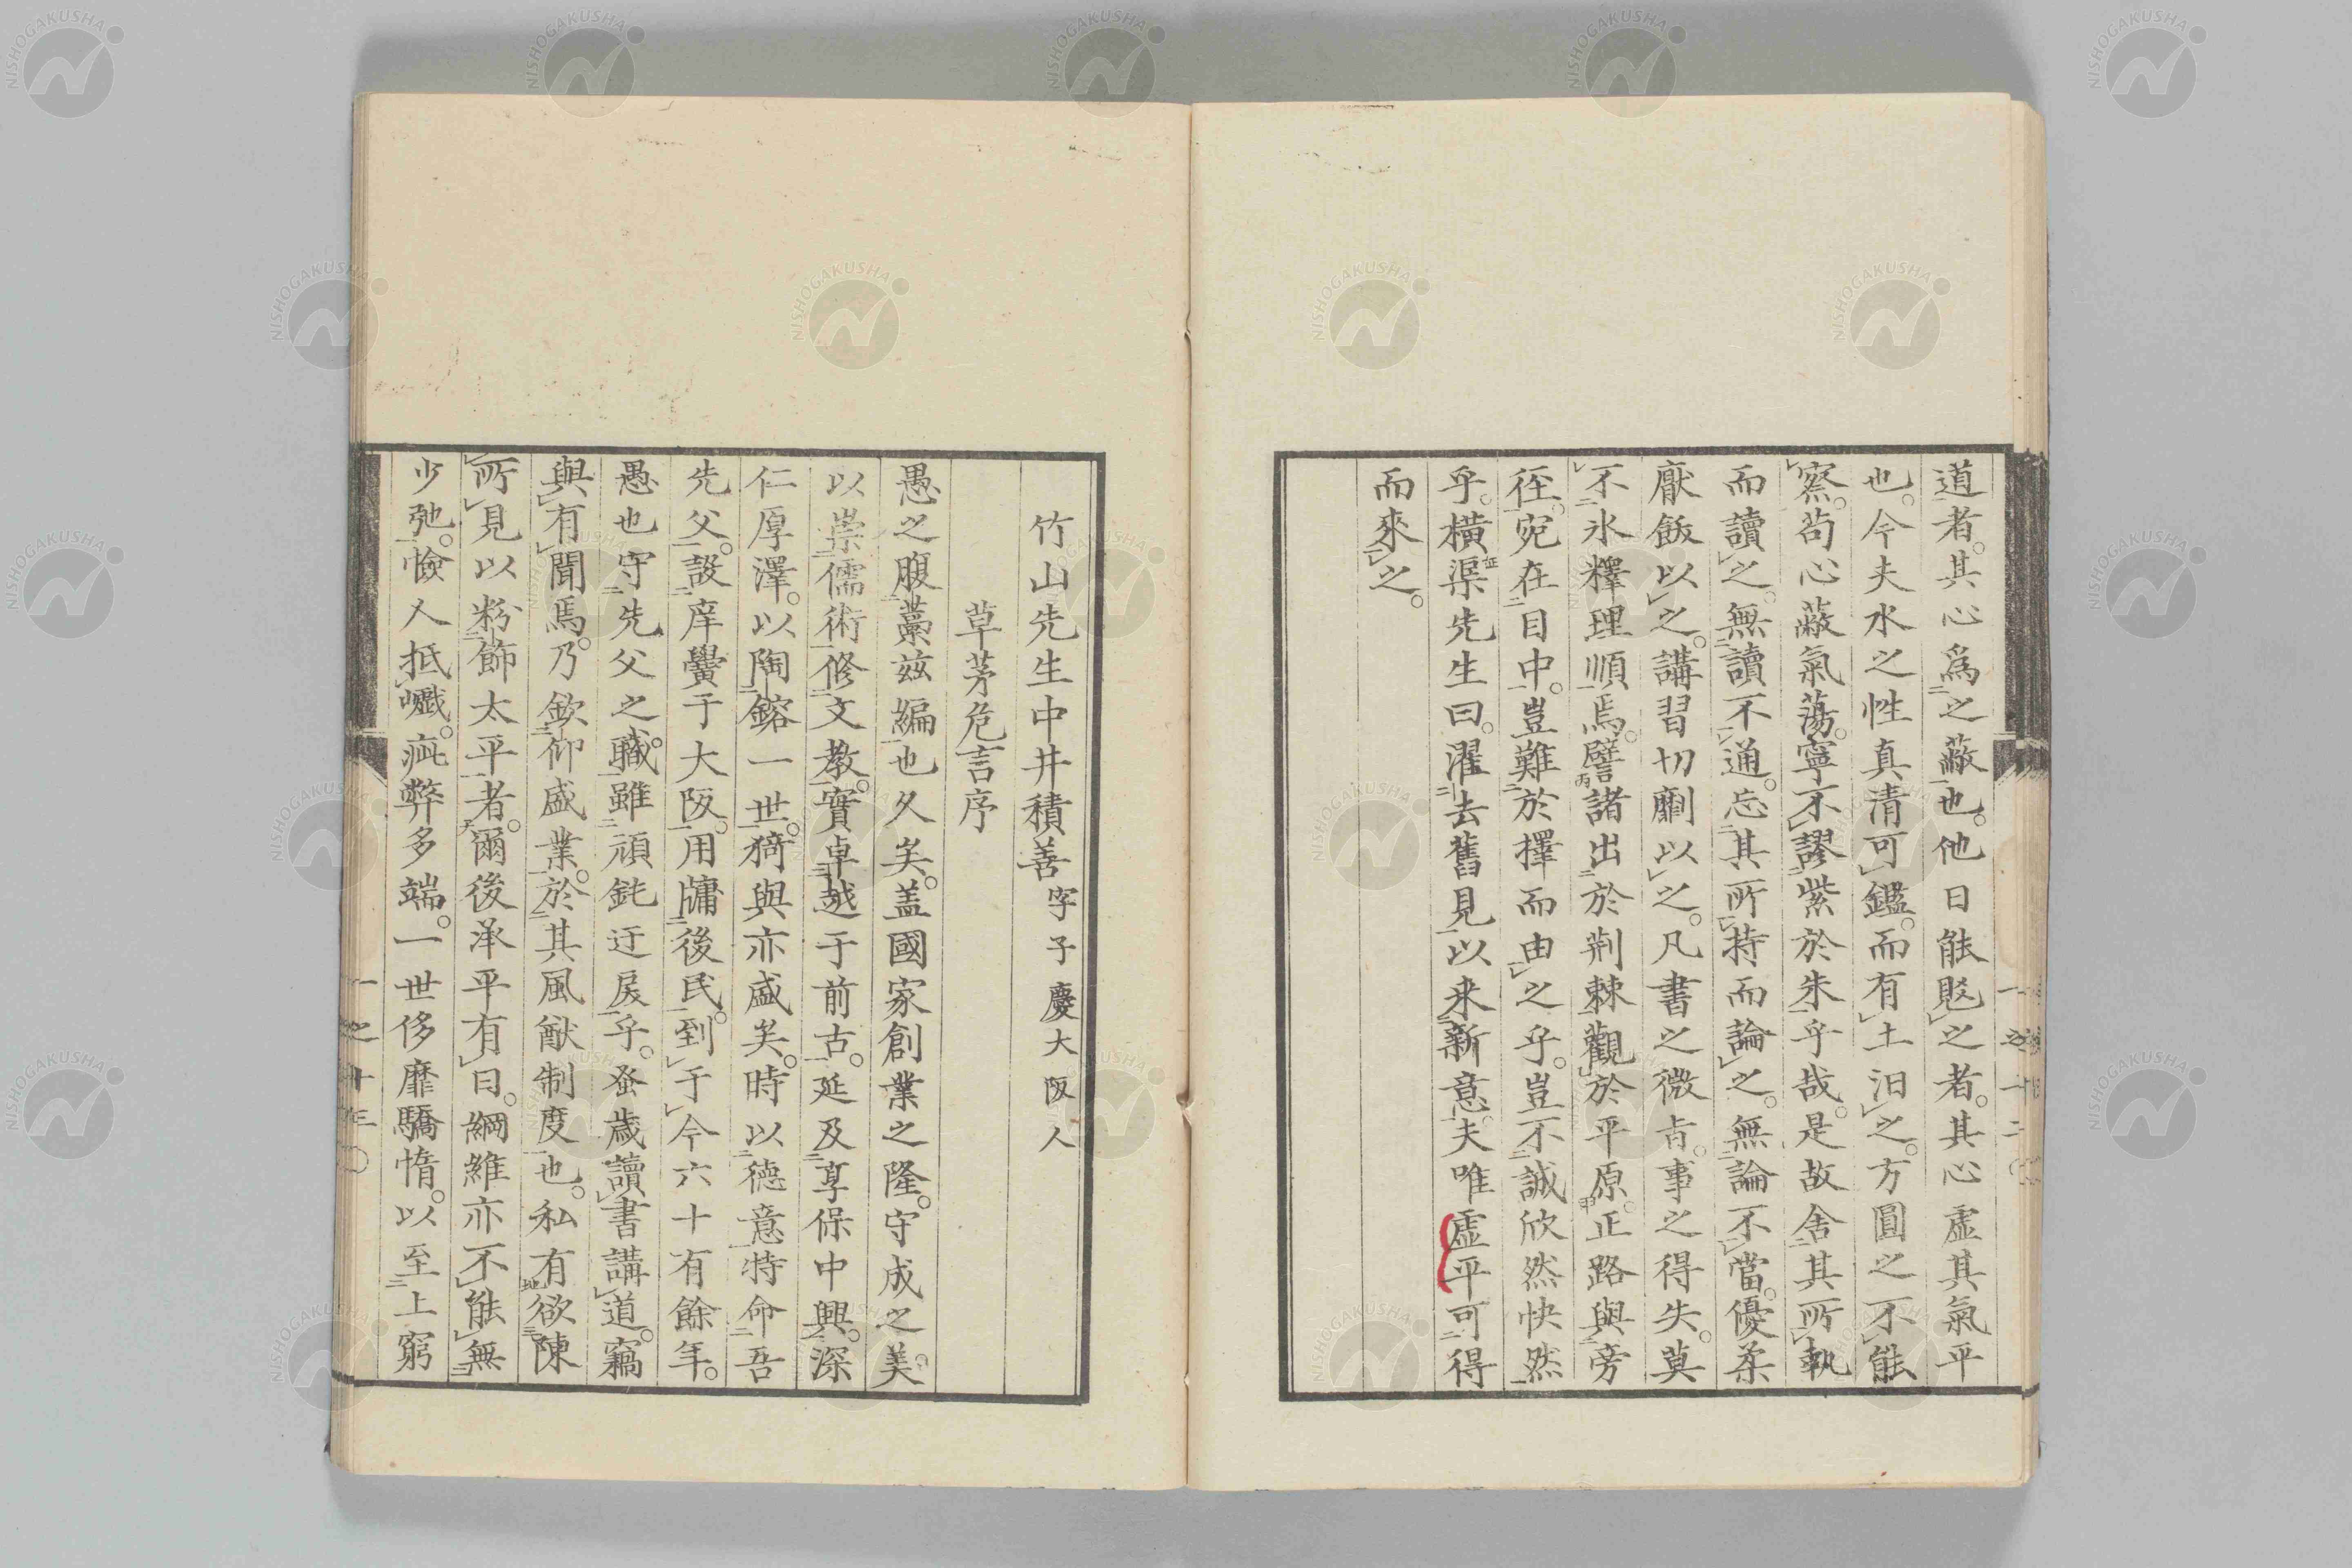 道者。其心爲之蔽也。他日能覘之者。其心虛其氣平
也。今夫水之性真清可鑑。而有土汨之。方圓之不能
察。苟心蔽氣蕩。寧不謬紫於朱乎哉。是故舍其所執
而讀之。無讀不通。忘其所持而論之。無論不當。優柔
厭飫以之。講習切劘以之。凡書之微旨。事之得失。莫
不氷釋理順焉。譬諸出於荆棘觀於平原。正路與旁
徑。宛在目中。豈難於擇而由之乎。豈不誠欣然快然
乎。橫渠先生曰。濯去舊見以来新意。夫唯虛平可得
而來之。
竹山先生中井積善字子慶大阪人
草茅危言序
愚之腹藁兹編也久矣。盖國家創業之隆。守成之美。
以崇儒術修文教。實卓越于前古。延及享保中興。深
仁厚澤。以陶鎔一世。猗與亦盛矣。時以德意特命吾
先父。設庠黌于大阪。用牖後民。到于今六十有餘年。
愚也守先父之職。雖頑鈍迂戾乎。蚤歲讀書講道。竊
與有聞焉。乃欽仰盛業。於其風猷制度也。私有欲陳
所見以粉飾太平者。爾後承平有日。綱維亦不能無
少弛。憸人抵巇。疵弊多端。一世侈靡驕惰。以至上窮